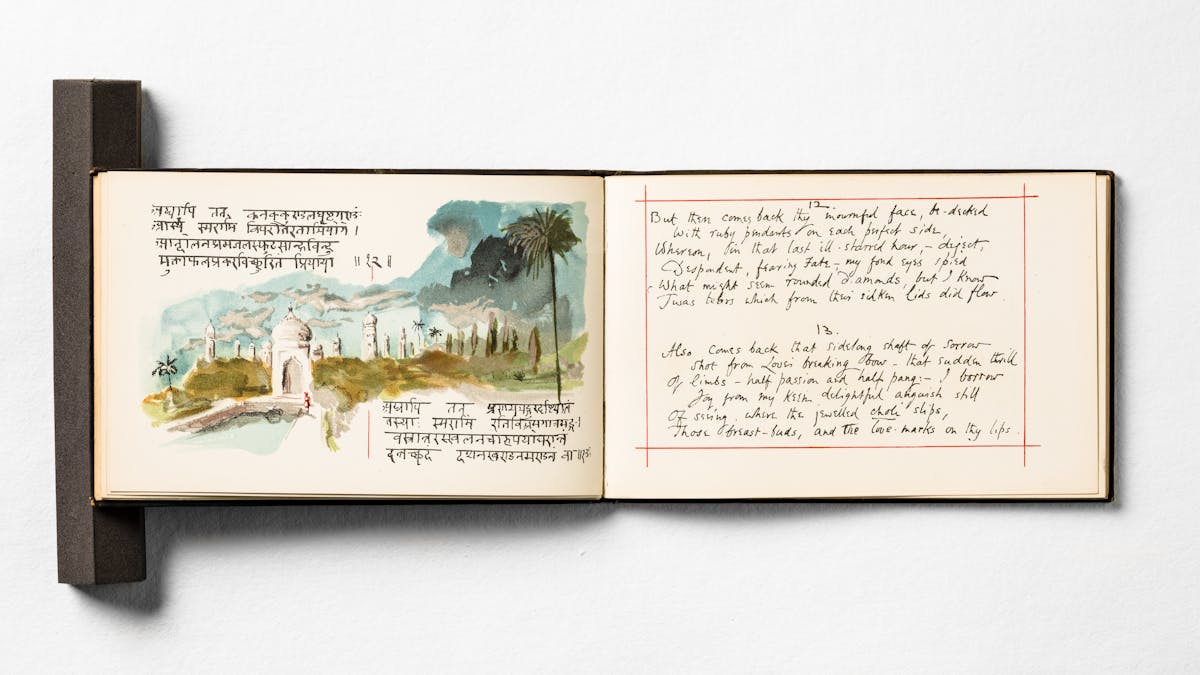 अद्यापि तत् कनककुण्डलघृष्टगण्डं
आस्यं स्मरामि विपरीतरताभियोगे ।
आन्दोलनश्रमजलस्फुटसान्द्रबिन्दु
मुक्ताफलप्रकरविच्छुरितं प्रियाया ॥१२॥
अद्यापि तत्
तस्याः स्मरामि
12.
But then comes back thy mournful face, be-decked
With ruby pendents on each perfect side,
Whereon, in that last ill-starred hour,- deject,
Despondent, fearing Fate,- my fond eyes spied
What might seem rounded diamonds, but I know
Twas tears which from their silken lids did flow.
13.
Also comes back that sidelong shaft of sorrow
Shot from Love's breaking bow - that sudden thrill
Of limbs - half passion and half pang:- I borrow
Joy from my keen delightful anguish still
Of seeing, where the jewelled choli slips,
Those breast-buds, and the love-marks on thy lips.